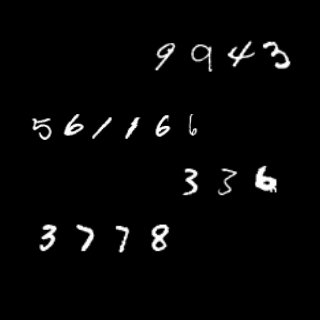 9943
561166
336
3778